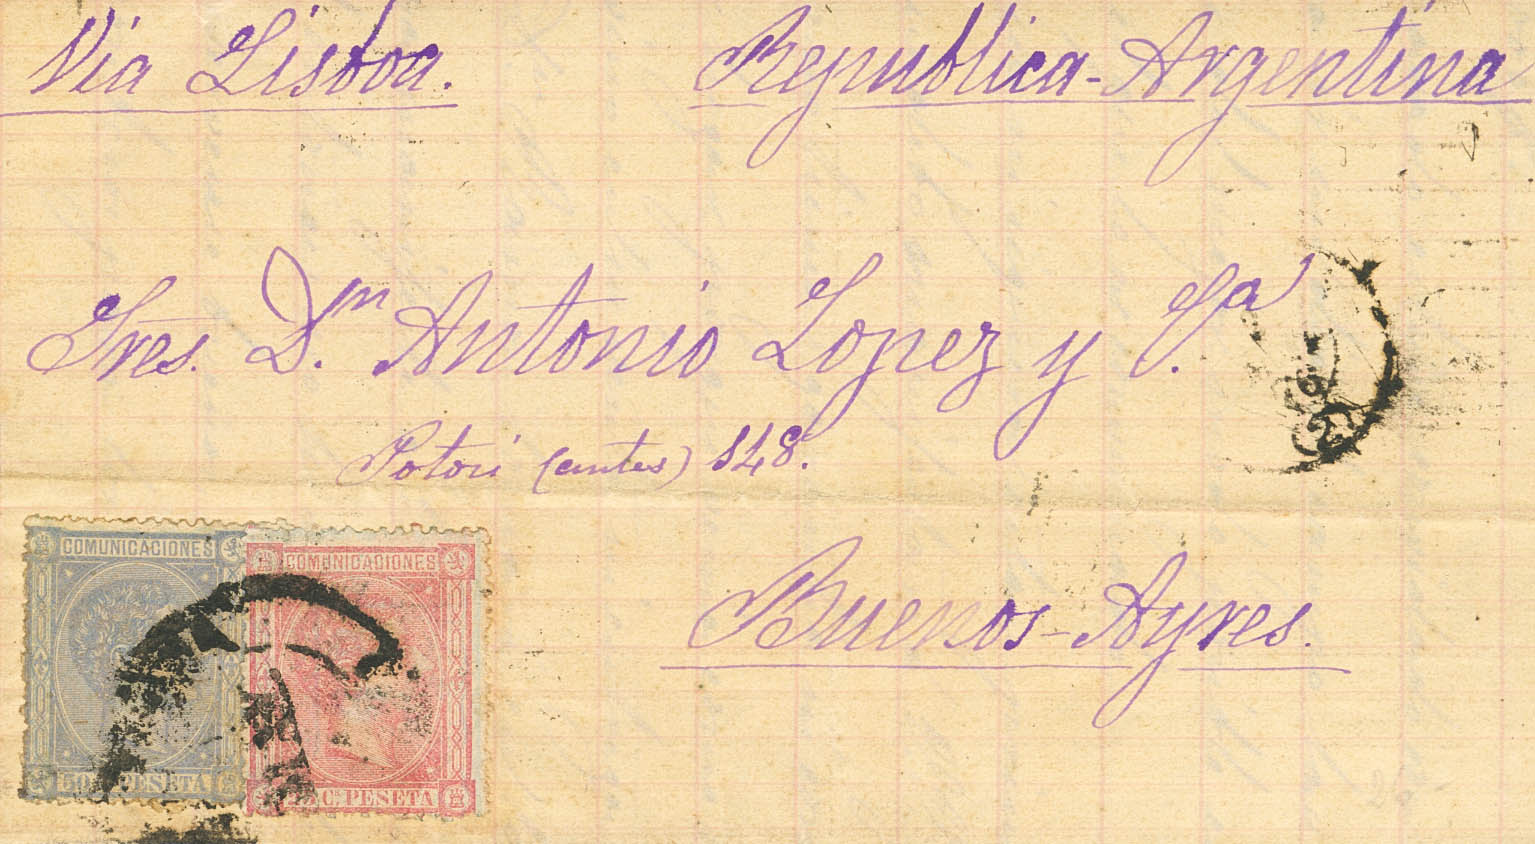 Via Lisboa. Republica-Argentina
Sres. Dn. Antonio Lopez y Ca.
Potosi (antes) 148.
Buenos-Ayres.
COMUNICACIONES COMUNICACIONES
PESETA C. PESETA